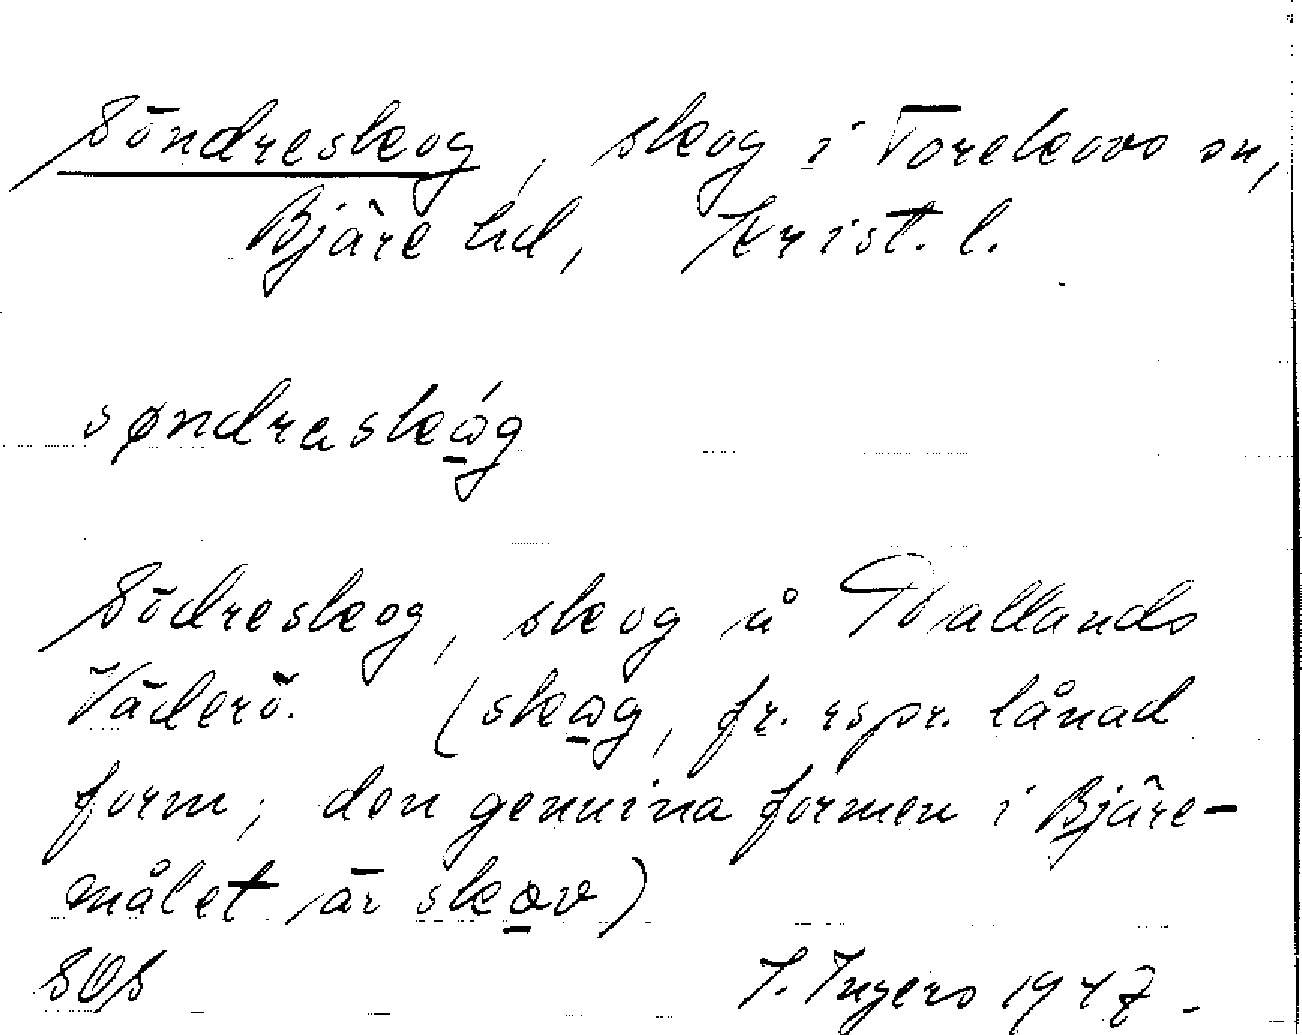 Söndreskog, skog i Torekovs sn,
Bjäre hd, Krist. l.
søndraskǫ́g
Södreskog, skog å Hallands
Väderö. (skǫg, fr. rspr. lånad
form; den genuina formen i Bjäre-
målet är skǫv)
SOS I. Ingers 1947.